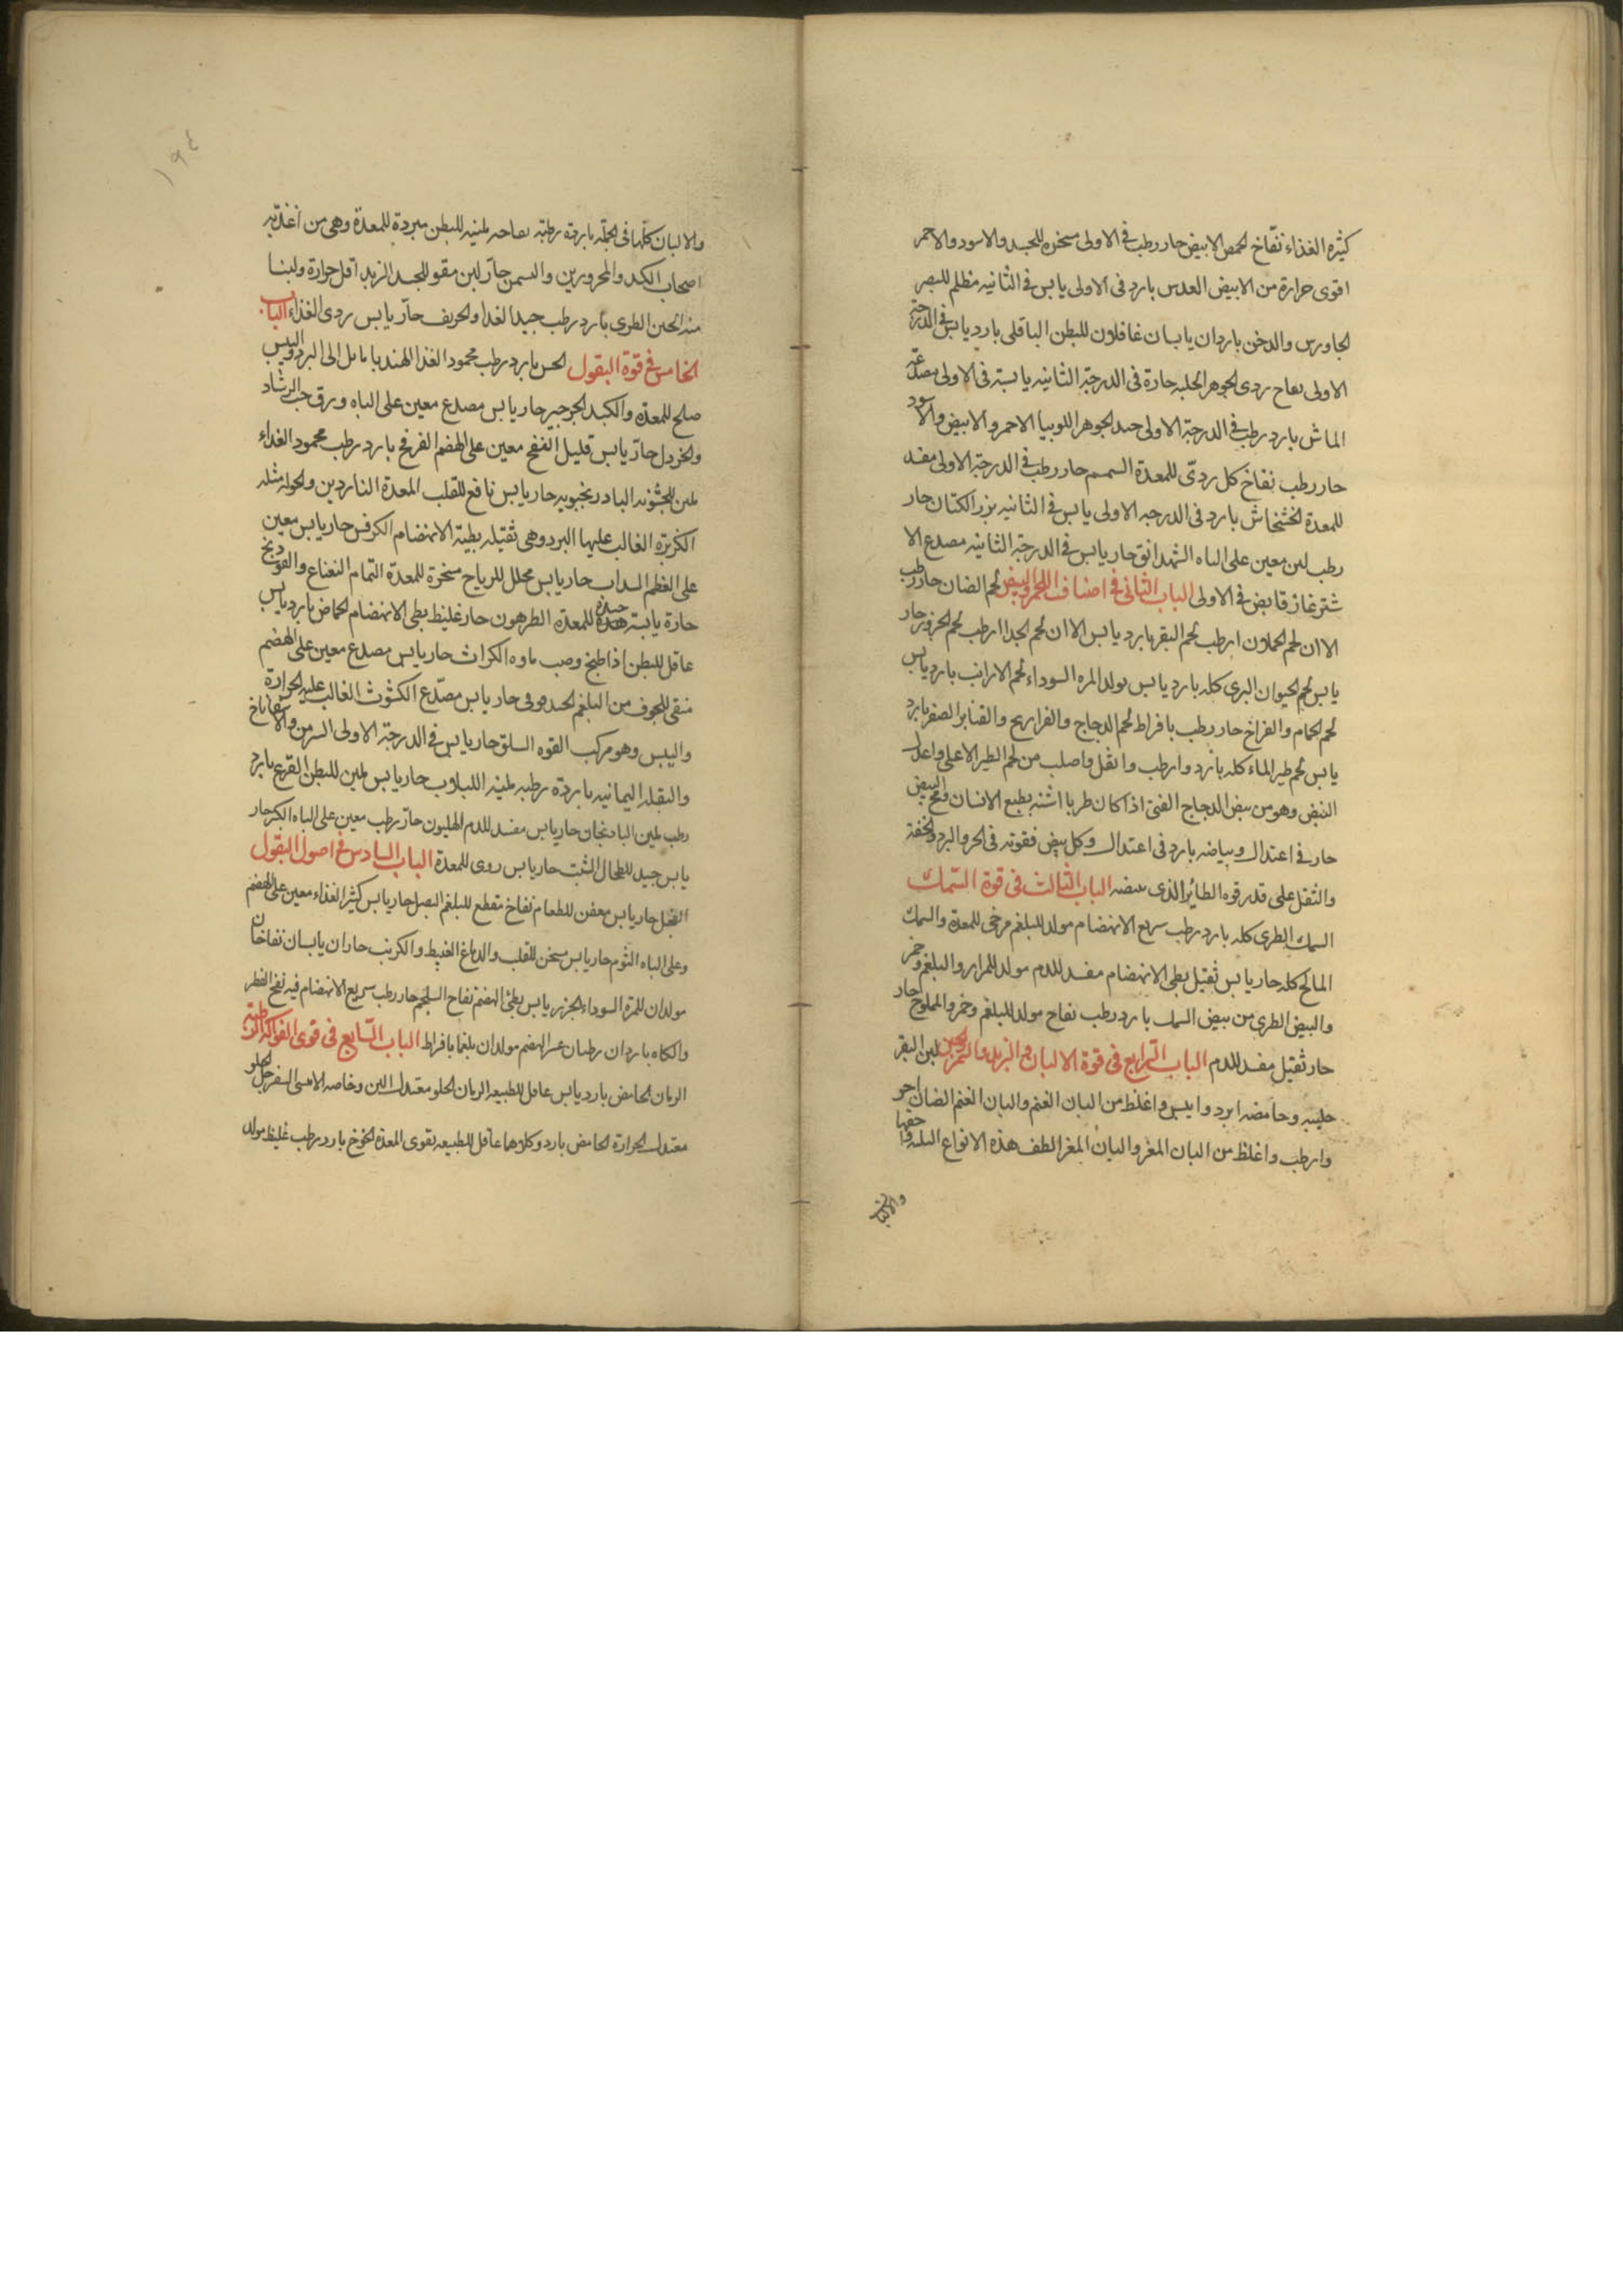 كثيرة الغذاء نفّاخ الحمص الابيض حار رطب في الاولى مسخن للجسد والاسود والاحمر
اقوى حرارة من الابيض العدس بارد فى الاولى يابس فى الثانيه مظلم للبصر
الجاورس والدخن باردان يابسان عاقلان للبطن الباقلى بارد يابس في الدرجة
الاولى نفاح ردى الجوهر الحلبه حارة فى الدرجة الثانيه يابسة فى الاولى مصدعة
الماش بارد رطب في الدرجة الاولى جيد الجوهر اللوبيا الاحمر والابيض والاسود
حار رطب نفاخ كل ردىّ للمعدة السمسم حار رطب في الدرجة الاولى مفسد
للمعدة الخشخاش بارد فى الدرجه الاولى يابس فى الثانيه بزر الكتان حار
رطب لين معين على الباه الشهدانق حار يابس فى الدرجة الثانيه مصدع الا
شترغاز قابض فى الاولى الباب الثانى فى اصناف اللحم والبيض لحم الضان حار رطب
الا ان لحم الحملان ارطب لحم البقر بارد يابس الا ان لحم الجدا ارطب لحم الجزور حار
يابس لحم الحيوان البرى كله بارد يابس يولد المره السوداء لحم الارانب بارد يابس
لحم الحمام والفراخ حار رطب بافراط لحم الدجاج والفراريج والقنابر الصفر بارد
يابس لحم طير الماء كله بارد وارطب واثقل واصلب من لحم الطير الاعلى واعدل
البيض وهو من بيض الدجاج الفتى اذا كان طريا اشبه بطبع الانسان ومح البيض
حار فى اعتدال وبياضه بارد فى اعتدال وكل بيض فقوته فى الحر والبرد والخفة
والثقل على قدر قوه الطائر الذى يبيضه الباب الثالث فى قوة السمك
السمك الطرى كله بارد رطب سريع الانهضام مولد للبلغم مرخى للمعدة والسمك
المالح كله حار يابس ثقيل بطى الانهضام مفسد للدم مولد للمرار والبلغم وخمر
والبيض الطرى من بيض السمك بارد رطب نفاح مولد للبلغم وخمر والمملوح حار
حار ثقيل مفسد للدم الباب الرابع فى قوة الالبان والزبد والسمن والجبن لبن البقر
حليبه وحامضه ابرد وايبس واغلظ من البان الغنم والبان الغنم الضان احر
وارطب واغلظ من البان المعز والبان المعز الطف هذه الانواع الثلثه واخفها
والالبان
١٩٤
والالبان كلها فى الجملة باردة رطبة نفاحه ملينه للبطن مبردة للمعدة وهى من اغذية
اصحاب الكد والمحرورين والسمن حار لين مقو للجسد الزبد اقل حرارة ولينا
منه الجبن الطرى بارد رطب جيد الغذا والحريف حار يابس ردى الغذاء الباب
الخامس فى قوة البقول الخس بارد رطب محمود الغذا الهندبا مايل الى البرد واليبس
صلح للمعدة والكبد الجرجير حار يابس مصدع معين على الباه وورق حب الرشاد
والخردل حارّ يابس قليل النفخ معين على الهضم الفرفخ بارد رطب محمود الغذاء
ملين للخشونه البادرنجبويه حار يابس نافع للقلب المعدة الناردين والخولة مثله
الكزبرة الغالب عليها البرد وهى ثقيله بطيئة الانهضام الكرفس حار يابس معين
على الهضم السداب حار يابس محلل للرياح مسخنة للمعدة النمام النعناع والفودنج
حارة يابسة جيدة للمعدة الطرخون حار غليظ بطى الانهضام الحماض بارد يابس
عاقل للبطن اذا طبخ وصب ماوه الكراث حار يابس مصدع معين على الهضم
منقى للجوف من البلغم الحندقوقى حار يابس مصدّع الكشوث الغالب عليه الحرارة
واليبس وهو مركب القوه السلق حار يابس فى الدرجة الاولى السرمن والاسفاناخ
والبقلة اليمانيه باردة رطبه ملينه اللبلاب حار يابس ملين للبطن القرع بارد
رطب ملين الباذنجان حار يابس مفسد للدم الهليون حارّ رطب معين على الباه الكبر حار
يابس جيد للطحال الشبت حار يابس روى للمعدة الباب السادس فى اصول البقول
الفجل حار يابس معفن للطعام نفاخ مقطع للبلغم البصل حار يابس كثير الغذاء معين على الهضم
وعلى الباه الثوم حار يابس مسخن للقلب والدماغ القنبيط والكرنب حاران يابسان نفاخان
مولدان للمرة السوداء الجزر يابس بطئ الهضم نفاح السلجم حار رطب سريع الانهضام فيه نفخ الفطر
والكماه باردان رطبان عسر الهضم مولدان بلغما بافراط الباب السابع فى قوى الفواكه الرطبة
الرمان الحامض بارد يابس عاقل للطبيعه الرمان الحلو معتدل اللين وخاصه الامسى السفرجل الحلو
معتدل الحرارة الحامض بارد وكلاهما عاقل للطبيعه يقوى المعدة الخوخ بارد رطب غليظ مولد